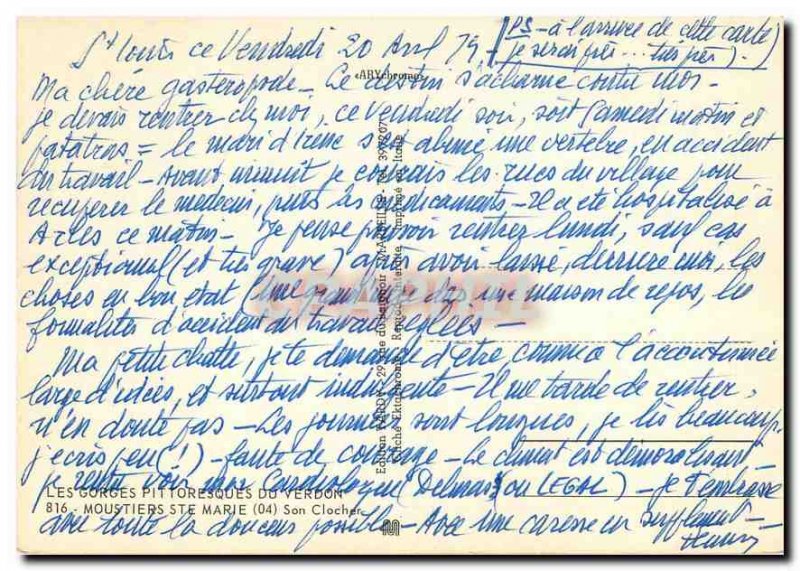 St Louis ce Vendredi 20 Avril 79 (PS - à l'arrivée de cette carte
je serai près... très près).
«ARYchrome»
Ma chère gasteropode - Le destin s'acharne contre moi -
je devais rentrer chez moi, ce Vendredi soir, soit Samedi matin et
patatras = le mari d'Irène s'est abimé une vertebre, en accident
du travail - Avant minuit je courais les rues du village pour
recuperer le medecin, puis les medicaments - Il a été hospitalisé à
Arles ce matin - Je pense pouvoir rentrer lundi, sauf cas
exceptionnel (et très grave) après avoir laissé, derrière moi, les
choses en bon état (une grand'mère dans une maison de repos, les
formalités d'accident du travail réglées -
Ma petite chatte, je te demande d'être, comme à l'accoutumée
large d'idées, et surtout indulgente - Il me tarde de rentrer,
n'en doute pas - Les journées sont longues, je lis beaucoup,
j'écris peu (!) - faute de courage - Le climat est démoralisant -
je rentre voir mon Cardiologue (Delmas) ou LEGAL) - je t'embrasse
avec toute la douceur possible - Avec une caresse en supplément -
LES GORGES PITTORESQUES DU VERDON
816 - MOUSTIERS STE MARIE (04) Son Clocher
Cliché Ektachrome, Reproduction interdite, Imprimé en Italie